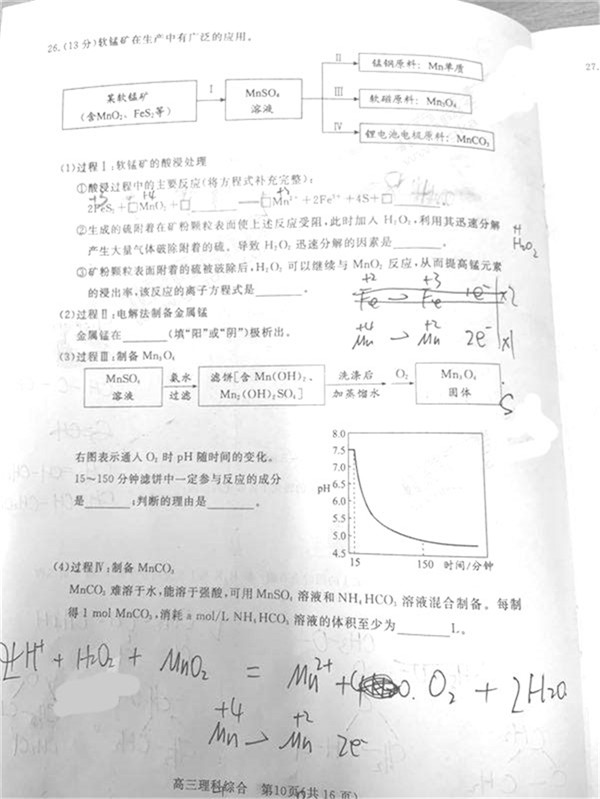 26.(13分)软锰矿在生产中有广泛的应用。
某软锰矿
(含MnO₂、FeS₂等)
Ⅰ
MnSO₄
溶液
Ⅱ
锰钢原料:Mn单质
Ⅲ
软磁原料:Mn₃O₄
Ⅳ
锂电池电极原料:MnCO₃
27.
(1)过程Ⅰ:软锰矿的酸浸处理
①酸浸过程中的主要反应(将方程式补充完整):
+3 +4 +3
2FeS₂+□MnO₂+□______——□Mn²⁺+2Fe³⁺+4S+□______。
②生成的硫附着在矿粉颗粒表面使上述反应受阻,此时加入H₂O₂,利用其迅速分解
产生大量气体破除附着的硫。导致H₂O₂迅速分解的因素是______。
H₂O₂
③矿粉颗粒表面附着的硫被破除后,H₂O₂可以继续与MnO₂反应,从而提高锰元素
的浸出率,该反应的离子方程式是______。
+2 +3
Fe → Fe 1e⁻ ×2
(2)过程Ⅱ:电解法制备金属锰
金属锰在______(填“阳”或“阴”)极析出。
+4 +2
Mn → Mn 2e⁻ ×1
(3)过程Ⅲ:制备Mn₃O₄
MnSO₄
溶液
氨水
过滤
滤饼[含Mn(OH)₂、
Mn₂(OH)₂SO₄]
洗涤后
加蒸馏水
O₂
Mn₃O₄
固体
S
右图表示通入O₂时pH随时间的变化。
15~150分钟滤饼中一定参与反应的成分
是______;判断的理由是______。
8.0
7.5
7.0
6.5
pH
6.0
5.5
5.0
4.5
15 150 时间/分钟
(4)过程Ⅳ:制备MnCO₃
MnCO₃难溶于水,能溶于强酸,可用MnSO₄溶液和NH₄HCO₃溶液混合制备。每制
得1 mol MnCO₃,消耗a mol/L NH₄HCO₃溶液的体积至少为______L。
2H⁺ + H₂O₂ + MnO₂ = Mn²⁺ + O₂ + 2H₂O
+4 +2
Mn → Mn 2e⁻
高三理科综合 第10页(共16页)